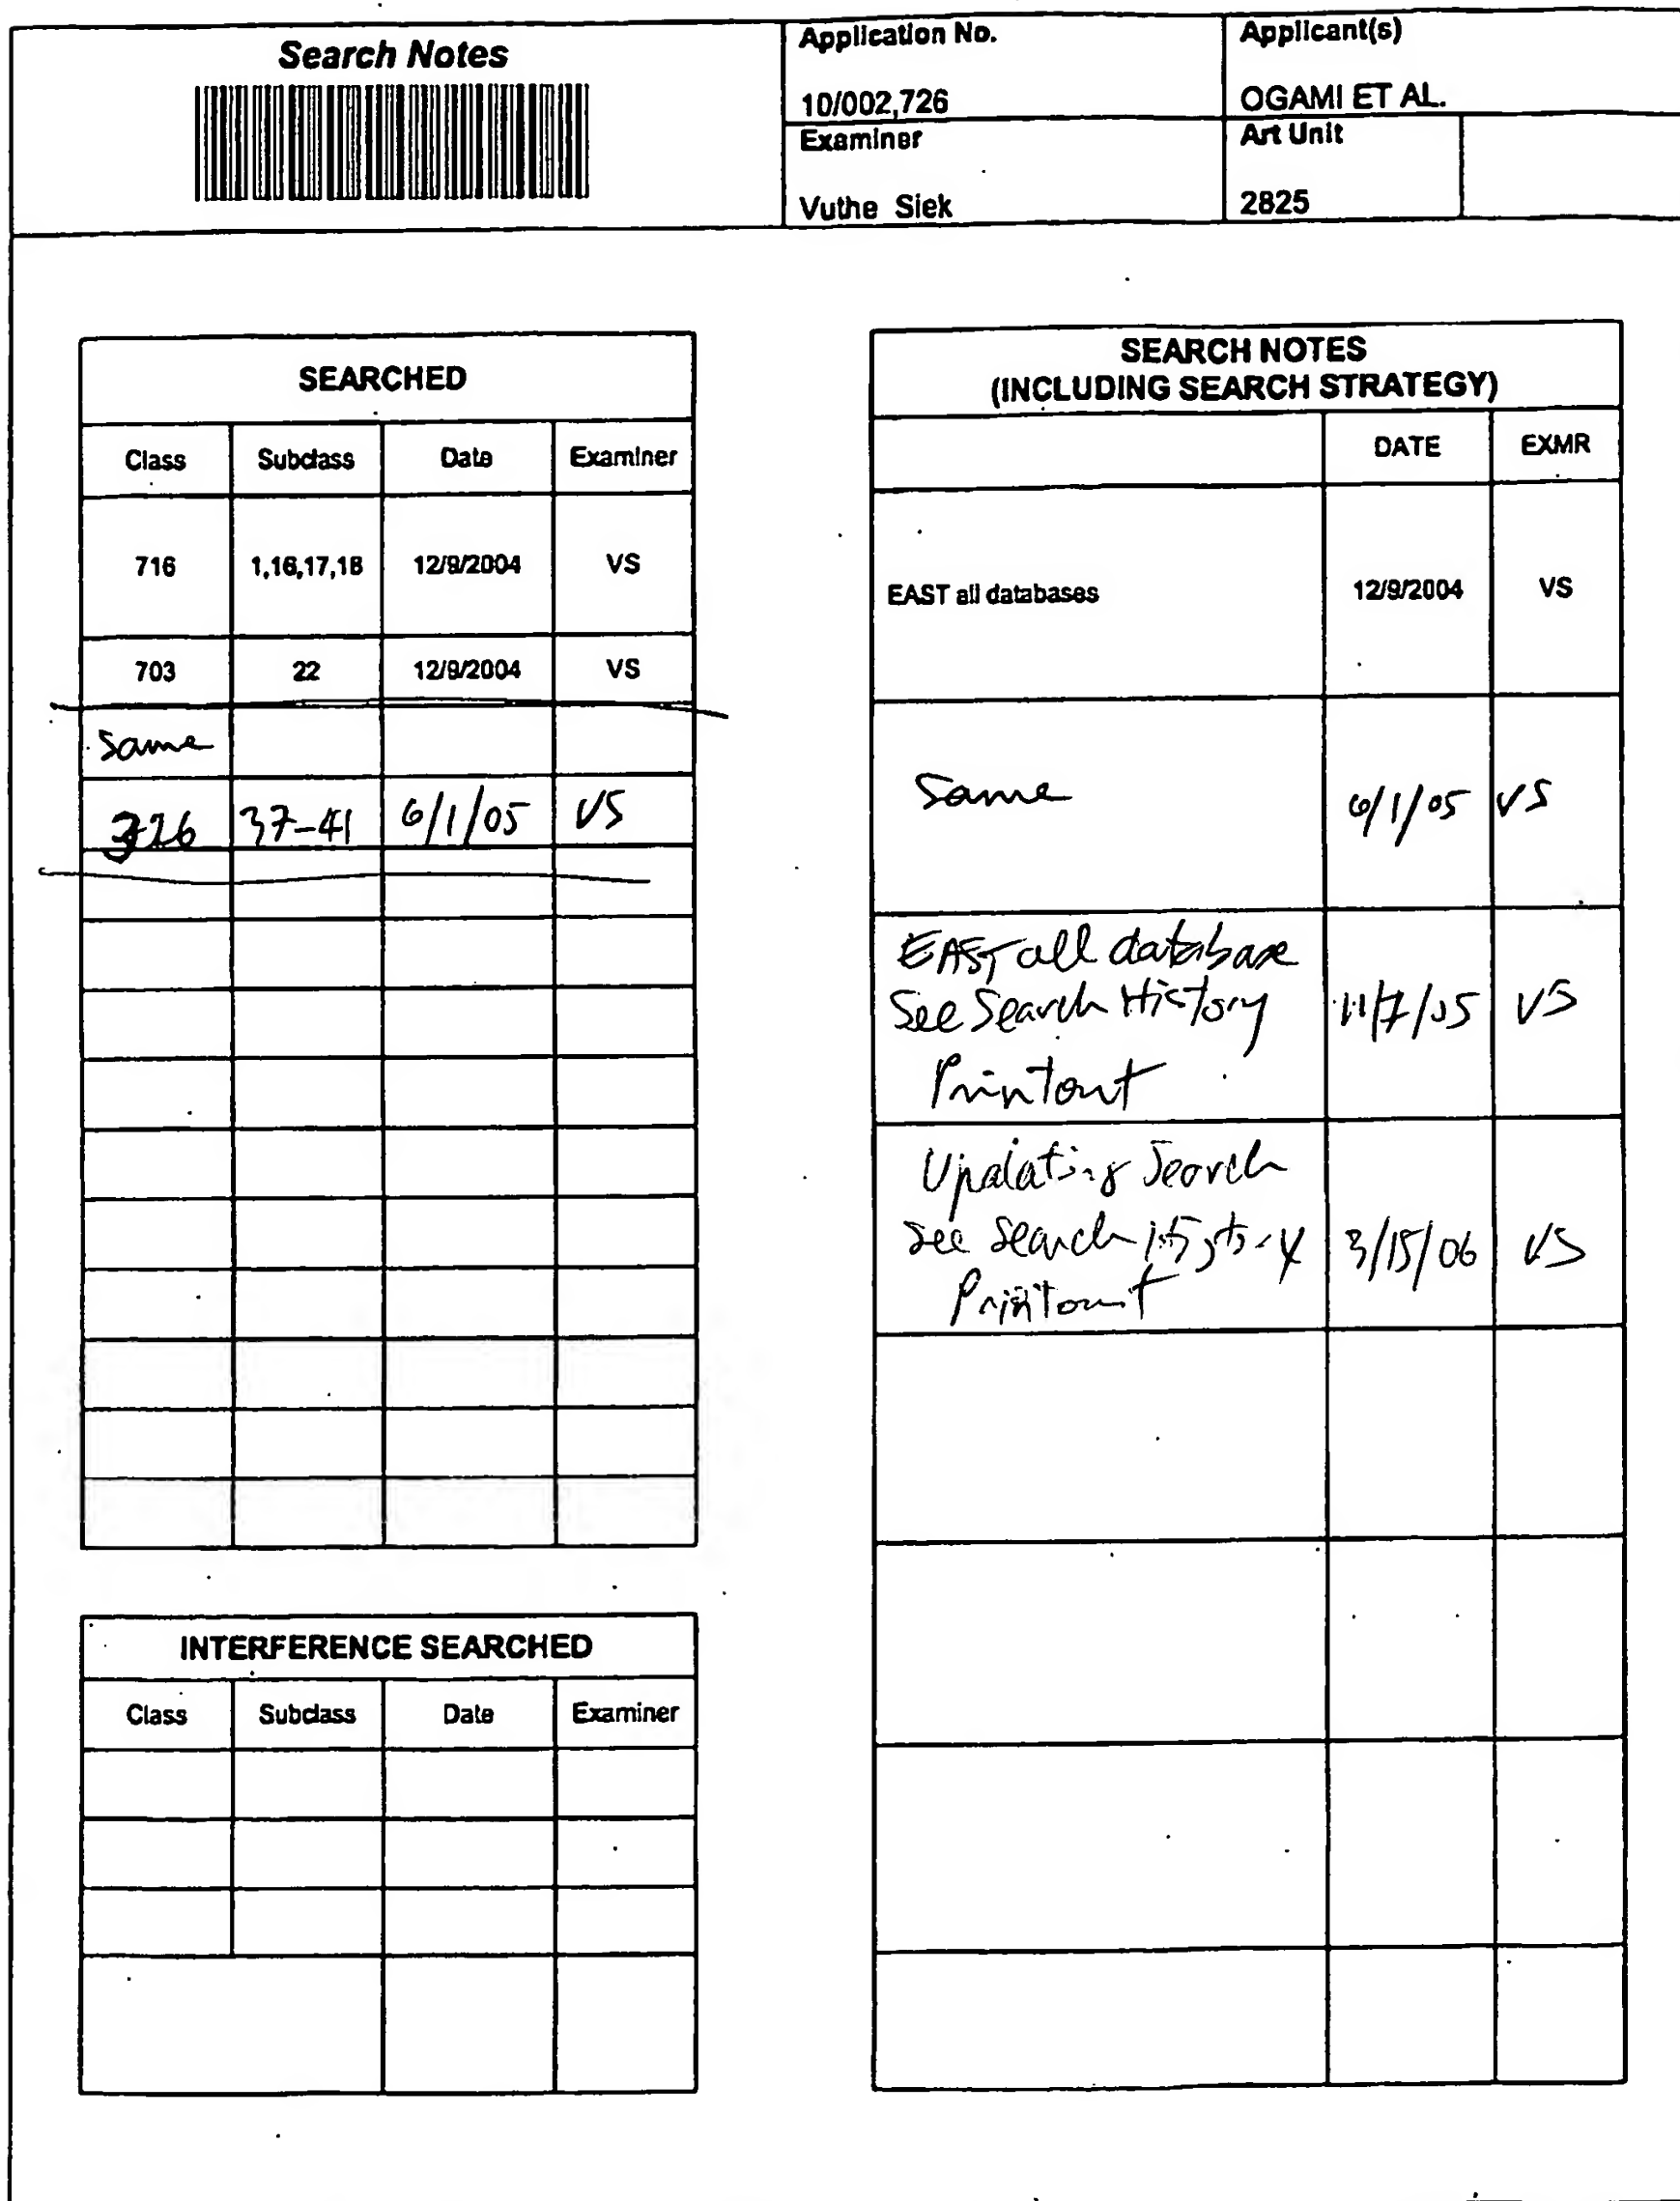 Search Notes
Application No.
10/002,726
Applicant(s)
OGAMI ET AL.
Examiner
Vuthe Siek
Art Unit
2825
SEARCHED
Class Subclass Date Examiner
716 1,16,17,18 12/9/2004 VS
703 22 12/9/2004 VS
Same
326 37-41 6/1/05 VS
INTERFERENCE SEARCHED
Class Subclass Date Examiner
SEARCH NOTES
(INCLUDING SEARCH STRATEGY)
DATE EXMR
EAST all databases 12/9/2004 VS
Same 6/1/05 VS
EAST all database
See Search History 11/7/05 VS
Printout
Updating Search
See Search History 3/15/06 VS
Printout